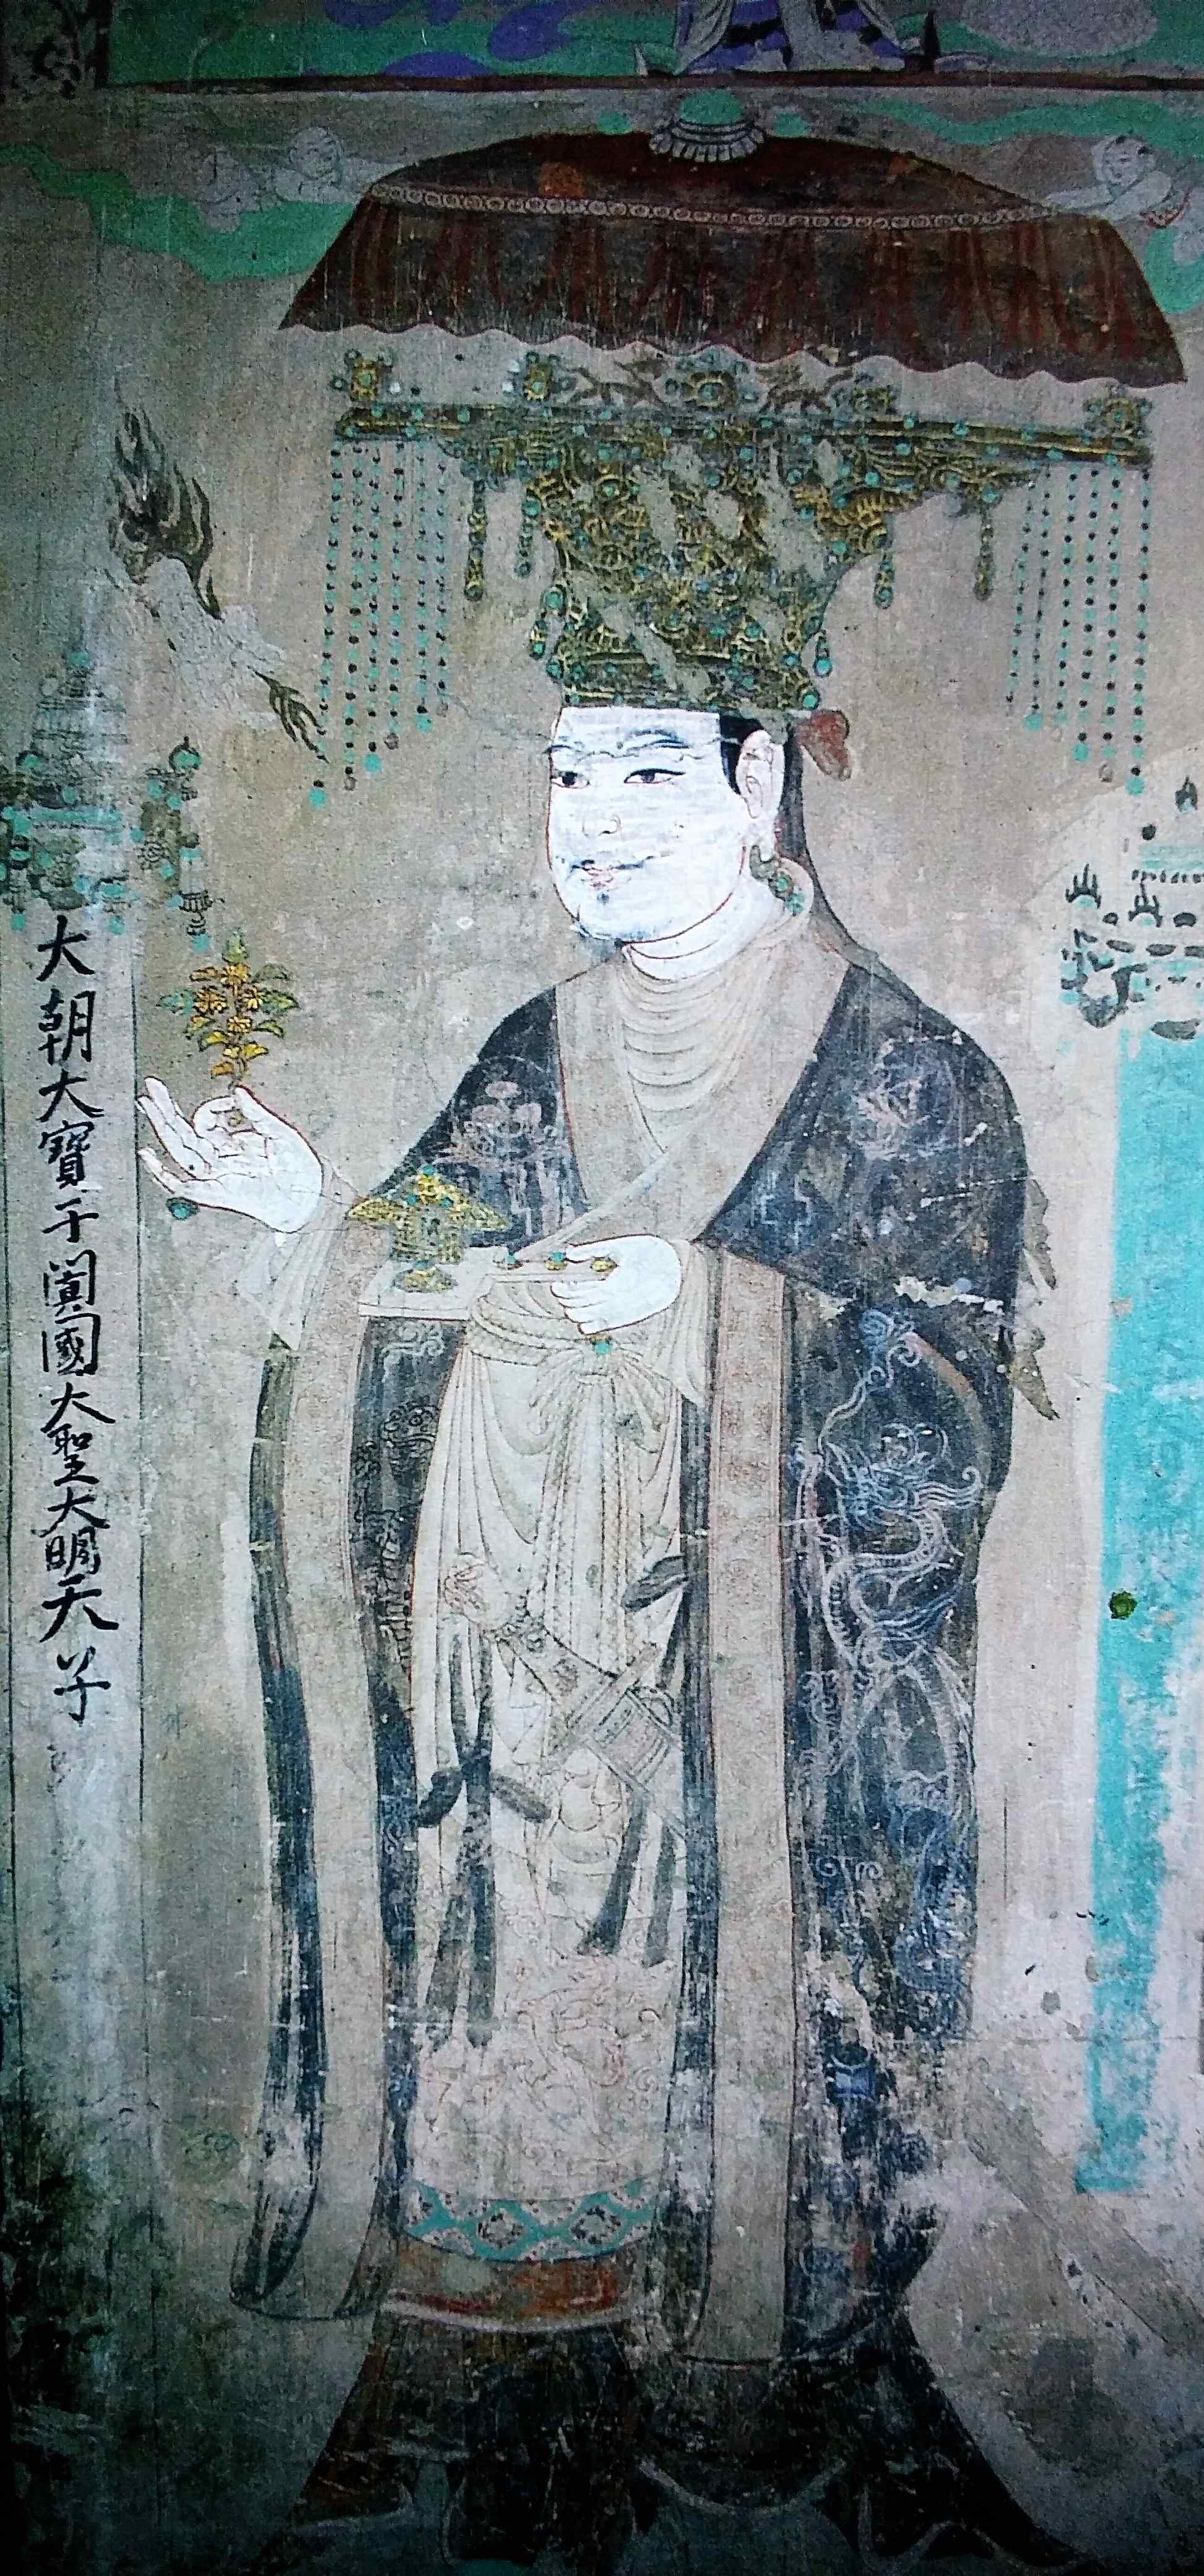 大朝大寶于闐國大聖大明天子